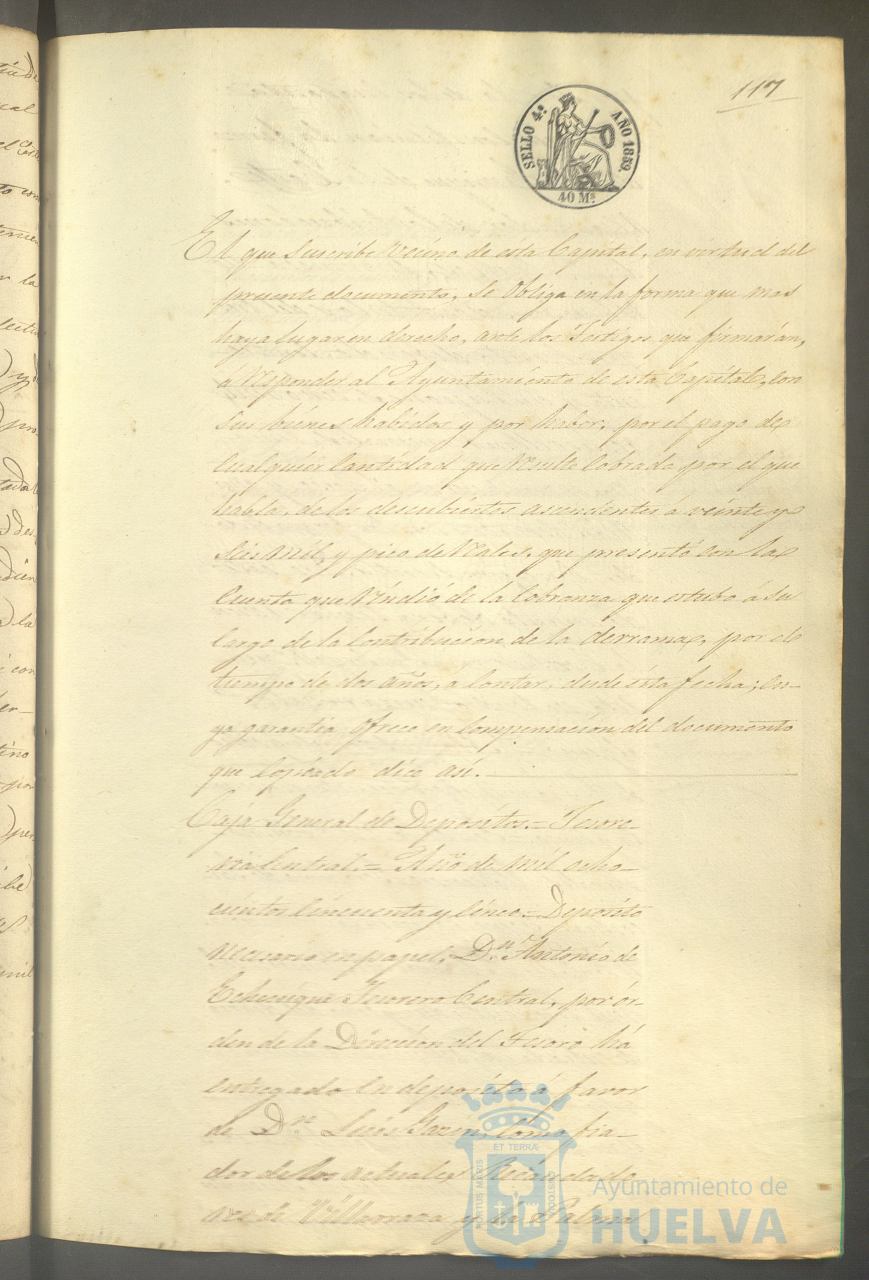 117
SELLO 4º AÑO 1859.
40 Ms.
El que suscribe vecino de esta Capital, en virtud del
presente documento, se obliga en la forma que mas
haya lugar en derecho, ante los testigos que firmarán,
á responder al Ayuntamiento de esta Capital, con
sus bienes habidos y por haber, por el pago de
cualquier cantidad que resulte cobrada por el que
habla, de los descubiertos ascendentes á veinte y
seis mil, y pico de reales, que presentó con la
cuenta que rindió de la cobranza que estubo á su
cargo de la contribucion de la derrama, por el
tiempo de dos años, á contar, desde esta fecha; cu-
ya garantia ofrece en compensacion del documento
que copiado dice asi.
Caja General de Depositos.= Tesore-
ria Central.= Año de mil ocho-
cientos cincuenta y cinco.= Deposito
necesario en papel. Dn. Antonio de
Echenique Tesorero Central, por ór-
den de la Direccion del Tesoro há
entregado en deposito á favor
de Dn. Luis como fia-
dor de los actuales Recaudado-
res de Villarrasa y la Palma
PORTUS MARIS ET TERRÆ CUSTODIA
Ayuntamiento de
HUELVA